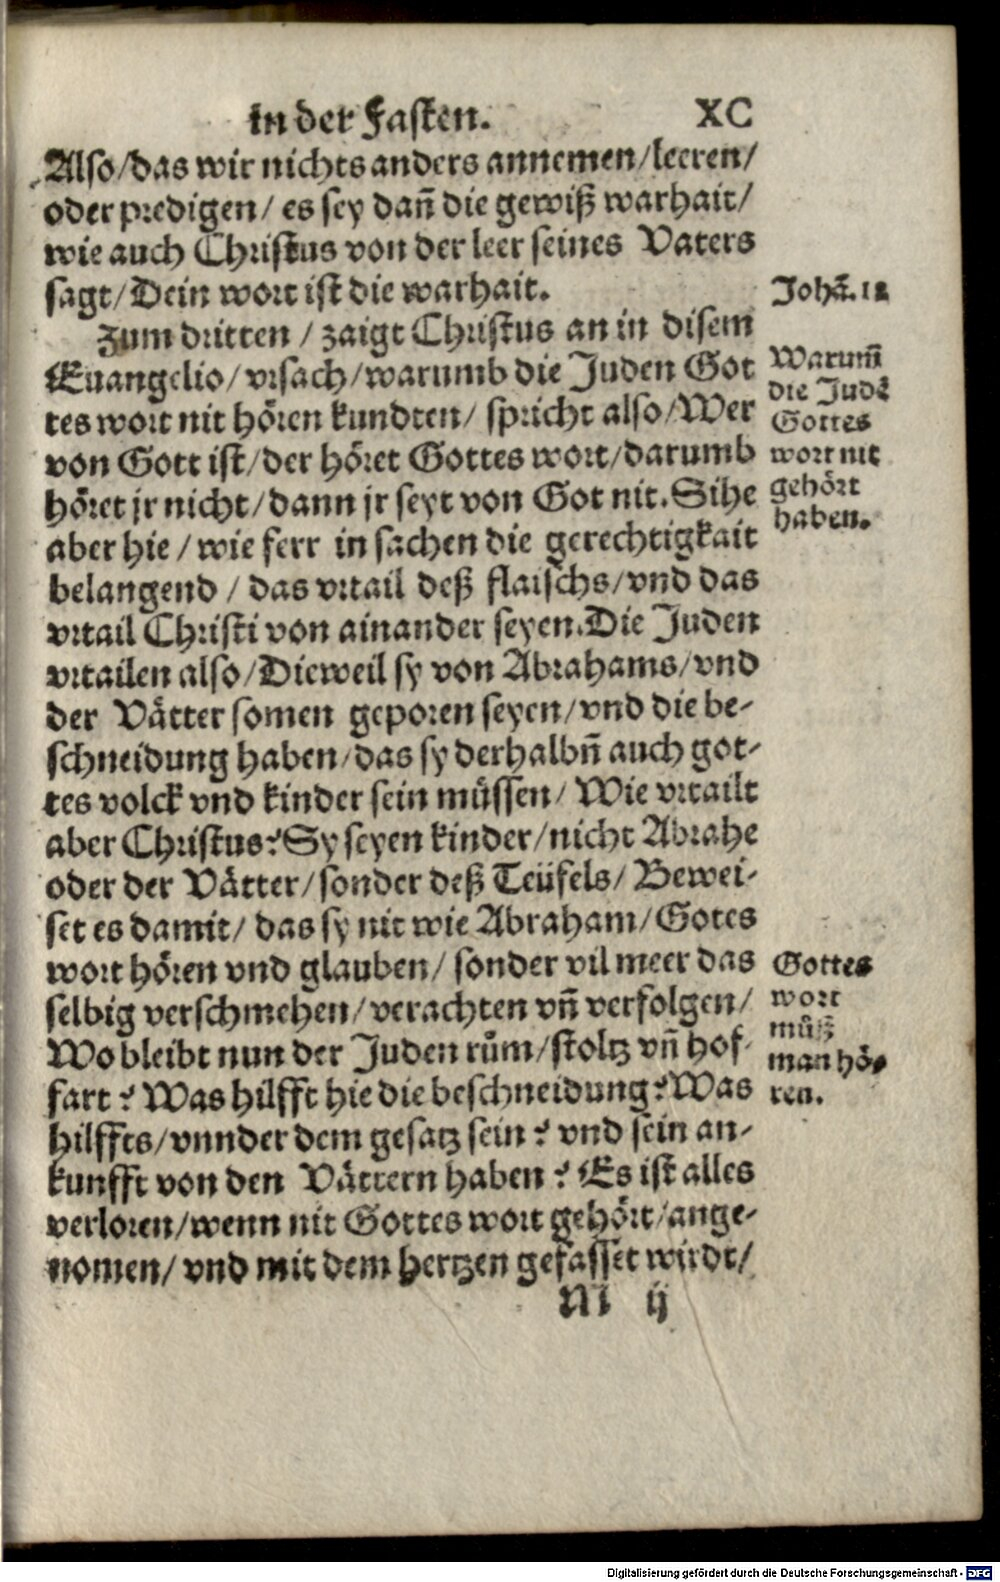 in der Fasten. XC
Also/das wir nichts anders annemen/leeren/
oder predigen/ es sey dañ die gewiß warhait/
wie auch Christus von der leer seines Vaters
sagt/Dein wort ist die warhait.
Johã. 18
Zum dritten / zaigt Christus an in disem
Euangelio/vrsach/warumb die Juden Got
tes wort nit hören kundten/ spricht also/Wer
von Gott ist/der höret Gottes wort/darumb
höret jr nicht/dann jr seyt von Got nit. Sihe
aber hie / wie ferr in sachen die gerechtigkait
belangend / das vrtail deß flaischs/vnd das
vrtail Christi von ainander seyen. Die Juden
vrtailen also/Dieweil sy von Abrahams/vnd
der Vätter somen geporen seyen/vnd die be-
schneidung haben/das sy derhalbñ auch got-
tes volck vnd kinder sein müssen/ Wie vrtailt
aber Christus? Sy seyen kinder/nicht Abrahe
oder der Vätter/sonder deß Teüfels/ Bewei-
set es damit/ das sy nit wie Abraham/Gotes
wort hören vnd glauben/ sonder vil meer das
selbig verschmehen/verachten vñ verfolgen/
Wo bleibt nun der Juden rům/stoltz vñ hof-
fart? Was hilfft hie die beschneidung? Was
hilffts/vnnder dem gesatz sein? vnd sein an-
kunfft von den Vättern haben? Es ist alles
verloren/wenn nit Gottes wort gehört/ange-
nomen/ vnd mit dem hertzen gefasset wirdt/
Warum̃
die Judẽ
Gottes
wort nit
gehört
haben.
Gottes
wort
můß
man hö-
ren.
M ij
Digitalisierung gefördert durch die Deutsche Forschungsgemeinschaft - DFG